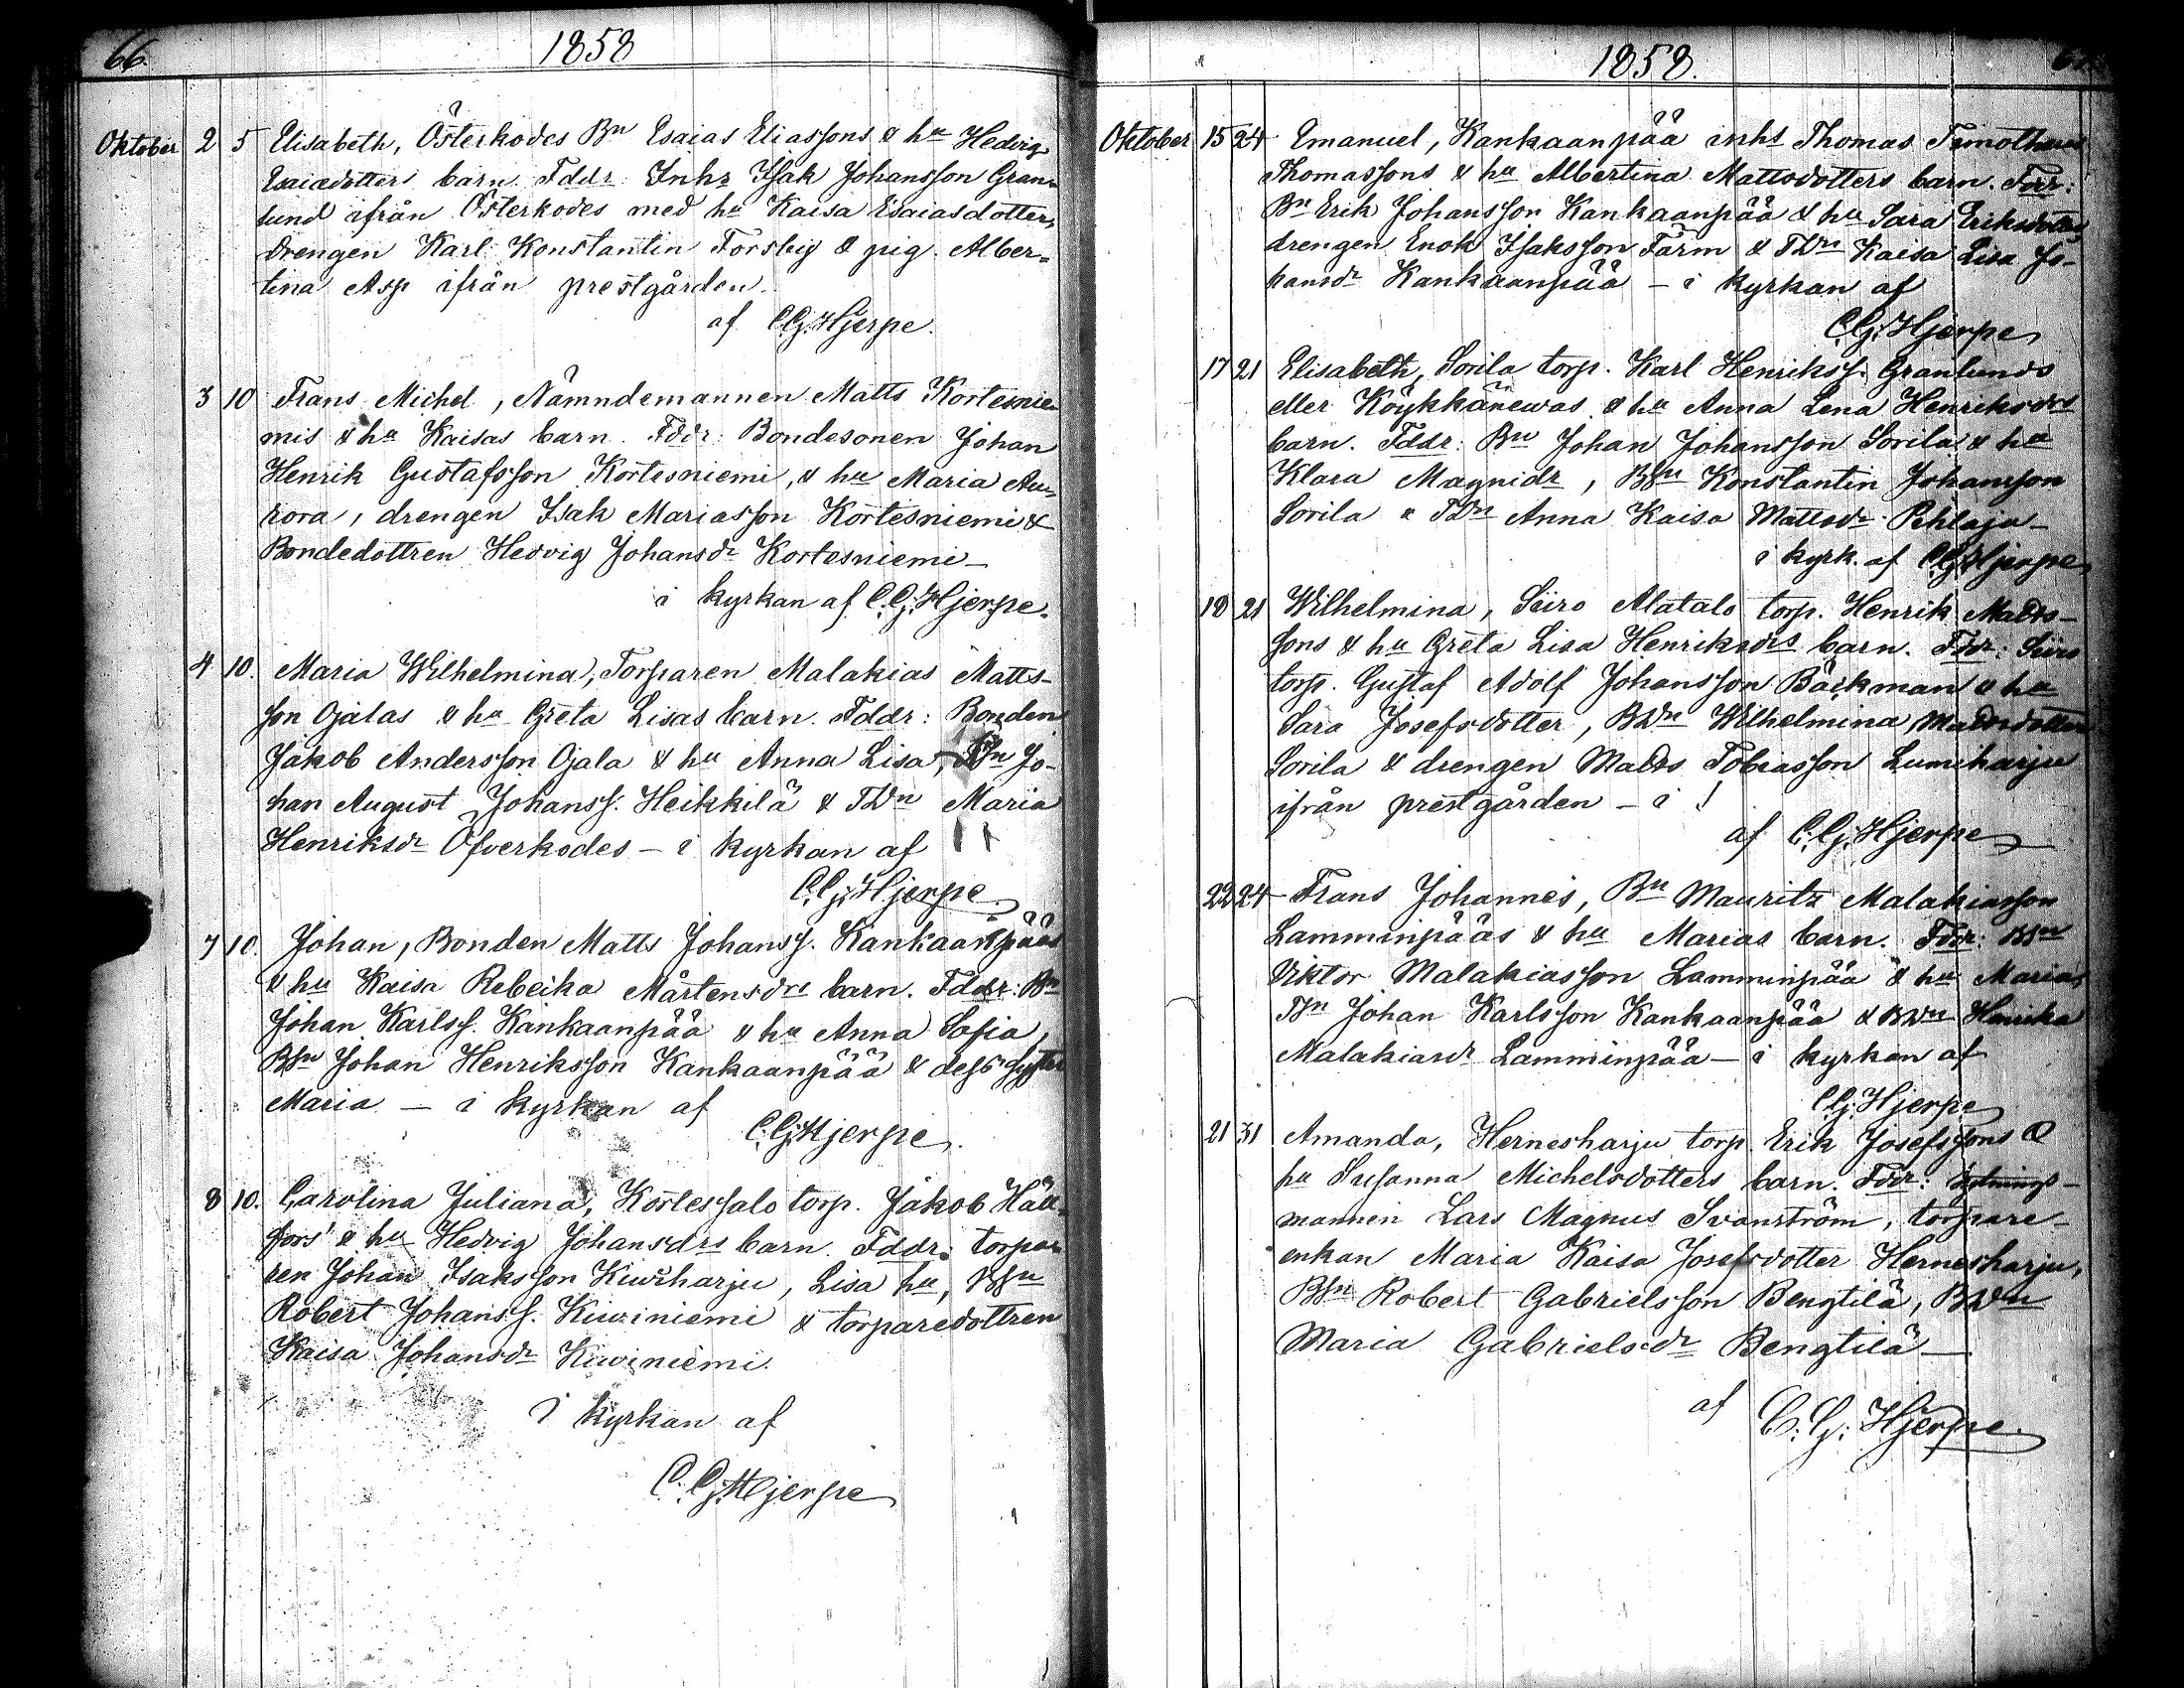 66.
1858
Oktober 2 5 Elisabeth, Österkodes Bn Esaias Eliassons & hu Hedvig
Esaiædotters barn. Fddr: Inhs Isak Johansson Gran-
lund ifrån Österkodes med hu Kaisa Esaiasdotter,
drengen Karl Konstantin Forsby & pig. Alber-
tina Asp ifrån prestgården.
af C.G. Hjerpe.
3 10 Frans Michel, Nämndemannen Matts Kortesnie-
mis & hu Kaisas barn. Fddr: Bondesonen Johan
Henrik Gustafsson Kortesniemi, & hu Maria Au-
rora, drengen Isak Mariasson Kortesniemi &
Bondedottren Hedvig Johansdr Kortesniemi –
i kyrkan af C.G. Hjerpe.
4 10. Maria Wilhelmina, Torparen Malakias Matts-
son Ojalas & hu Greta Lisas barn. Fddr: Bonden
Jakob Andersson Ojala & hu Anna Lisa, Jo-
han August Johanss. Heikkilä & TDn Maria
Henriksdr Öfverkodes – i kyrkan af
C.G. Hjerpe
7 10. Johan, Bonden Matts Johanss. Kankaanpääs
& hu Kaisa Rebeika Mårtensdrs barn. Fddr: Bn
Johan Karlss. Kankaanpää & hu Anna Sofia,
BSn Johan Henriksson Kankaanpää & dess syster
Maria – i kyrkan af
C.G. Hjerpe.
8 10. Carolina Juliana, Kortessalo torp. Jakob Häll-
fors' & hu Hedvig Johansdrs barn. Fddr: torpa-
ren Johan Isaksson Kiwiharju, Lisa hu, BSn
Robert Johanss. Kiwiniemi & torparedottren
Kaisa Johansdr Kiwiniemi.
i kyrkan af
C.G. Hjerpe
1858.
Oktober 15 24 Emanuel, Kankaanpää inhs Thomas Timotheus
Thomassons & hu Albertina Mattsdotters barn. Fddr:
Bn Erik Johansson Kankaanpää & hu Sara Eriksdotter,
drengen Enok Isaksson Färm & TDn Kaisa Lisa Jo-
hansdr Kankaanpää – i kyrkan af
C.G. Hjerpe
17 21 Elisabeth, Sorila torp. Karl Henrikss. Granlunds
eller Köykkänewas & hu Anna Lena Henriksdrs
barn. Fddr: Bn Johan Johansson Sorila & hu
Klara Magnidr, BSn Konstantin Johansson
Sorila & TDn Anna Kaisa Mattsdr Pihlaja –
i kyrk. af C.G. Hjerpe
18 21 Wilhelmina, Siiro Alatalo torp. Henrik Matts-
sons & hu Greta Lisa Henriksdrs barn. Fddr: Siiro
torp. Gustaf Adolf Johansson Bäckman & hu
Sara Josefsdotter, BDn Wilhelmina Mattsdotter
Sorila & drengen Matts Tobiasson Lumiharju
ifrån prestgården – i
af C.G. Hjerpe
22 24 Frans Johannes, Bn Mauritz Malakiasson
Lamminpääs & hu Marias barn. Fddr: BSn
Viktor Malakiasson Lamminpää & hu Maria,
BSn Johan Karlsson Kankaanpää & BDn Henrika
Malakiasdr Lamminpää – i kyrkan af
C.G. Hjerpe
21 31 Amanda, Hernesharju torp. Erik Josefssons &
hu Susanna Michelsdotters barn. Fddr:
mannen Lars Magnus Svanström, torpare-
enkan Maria Kaisa Josefsdotter Hernesharju,
BSn Robert Gabrielsson Bengtilä, BDn
Maria Gabrielsdr Bengtilä –
af C.G. Hjerpe.